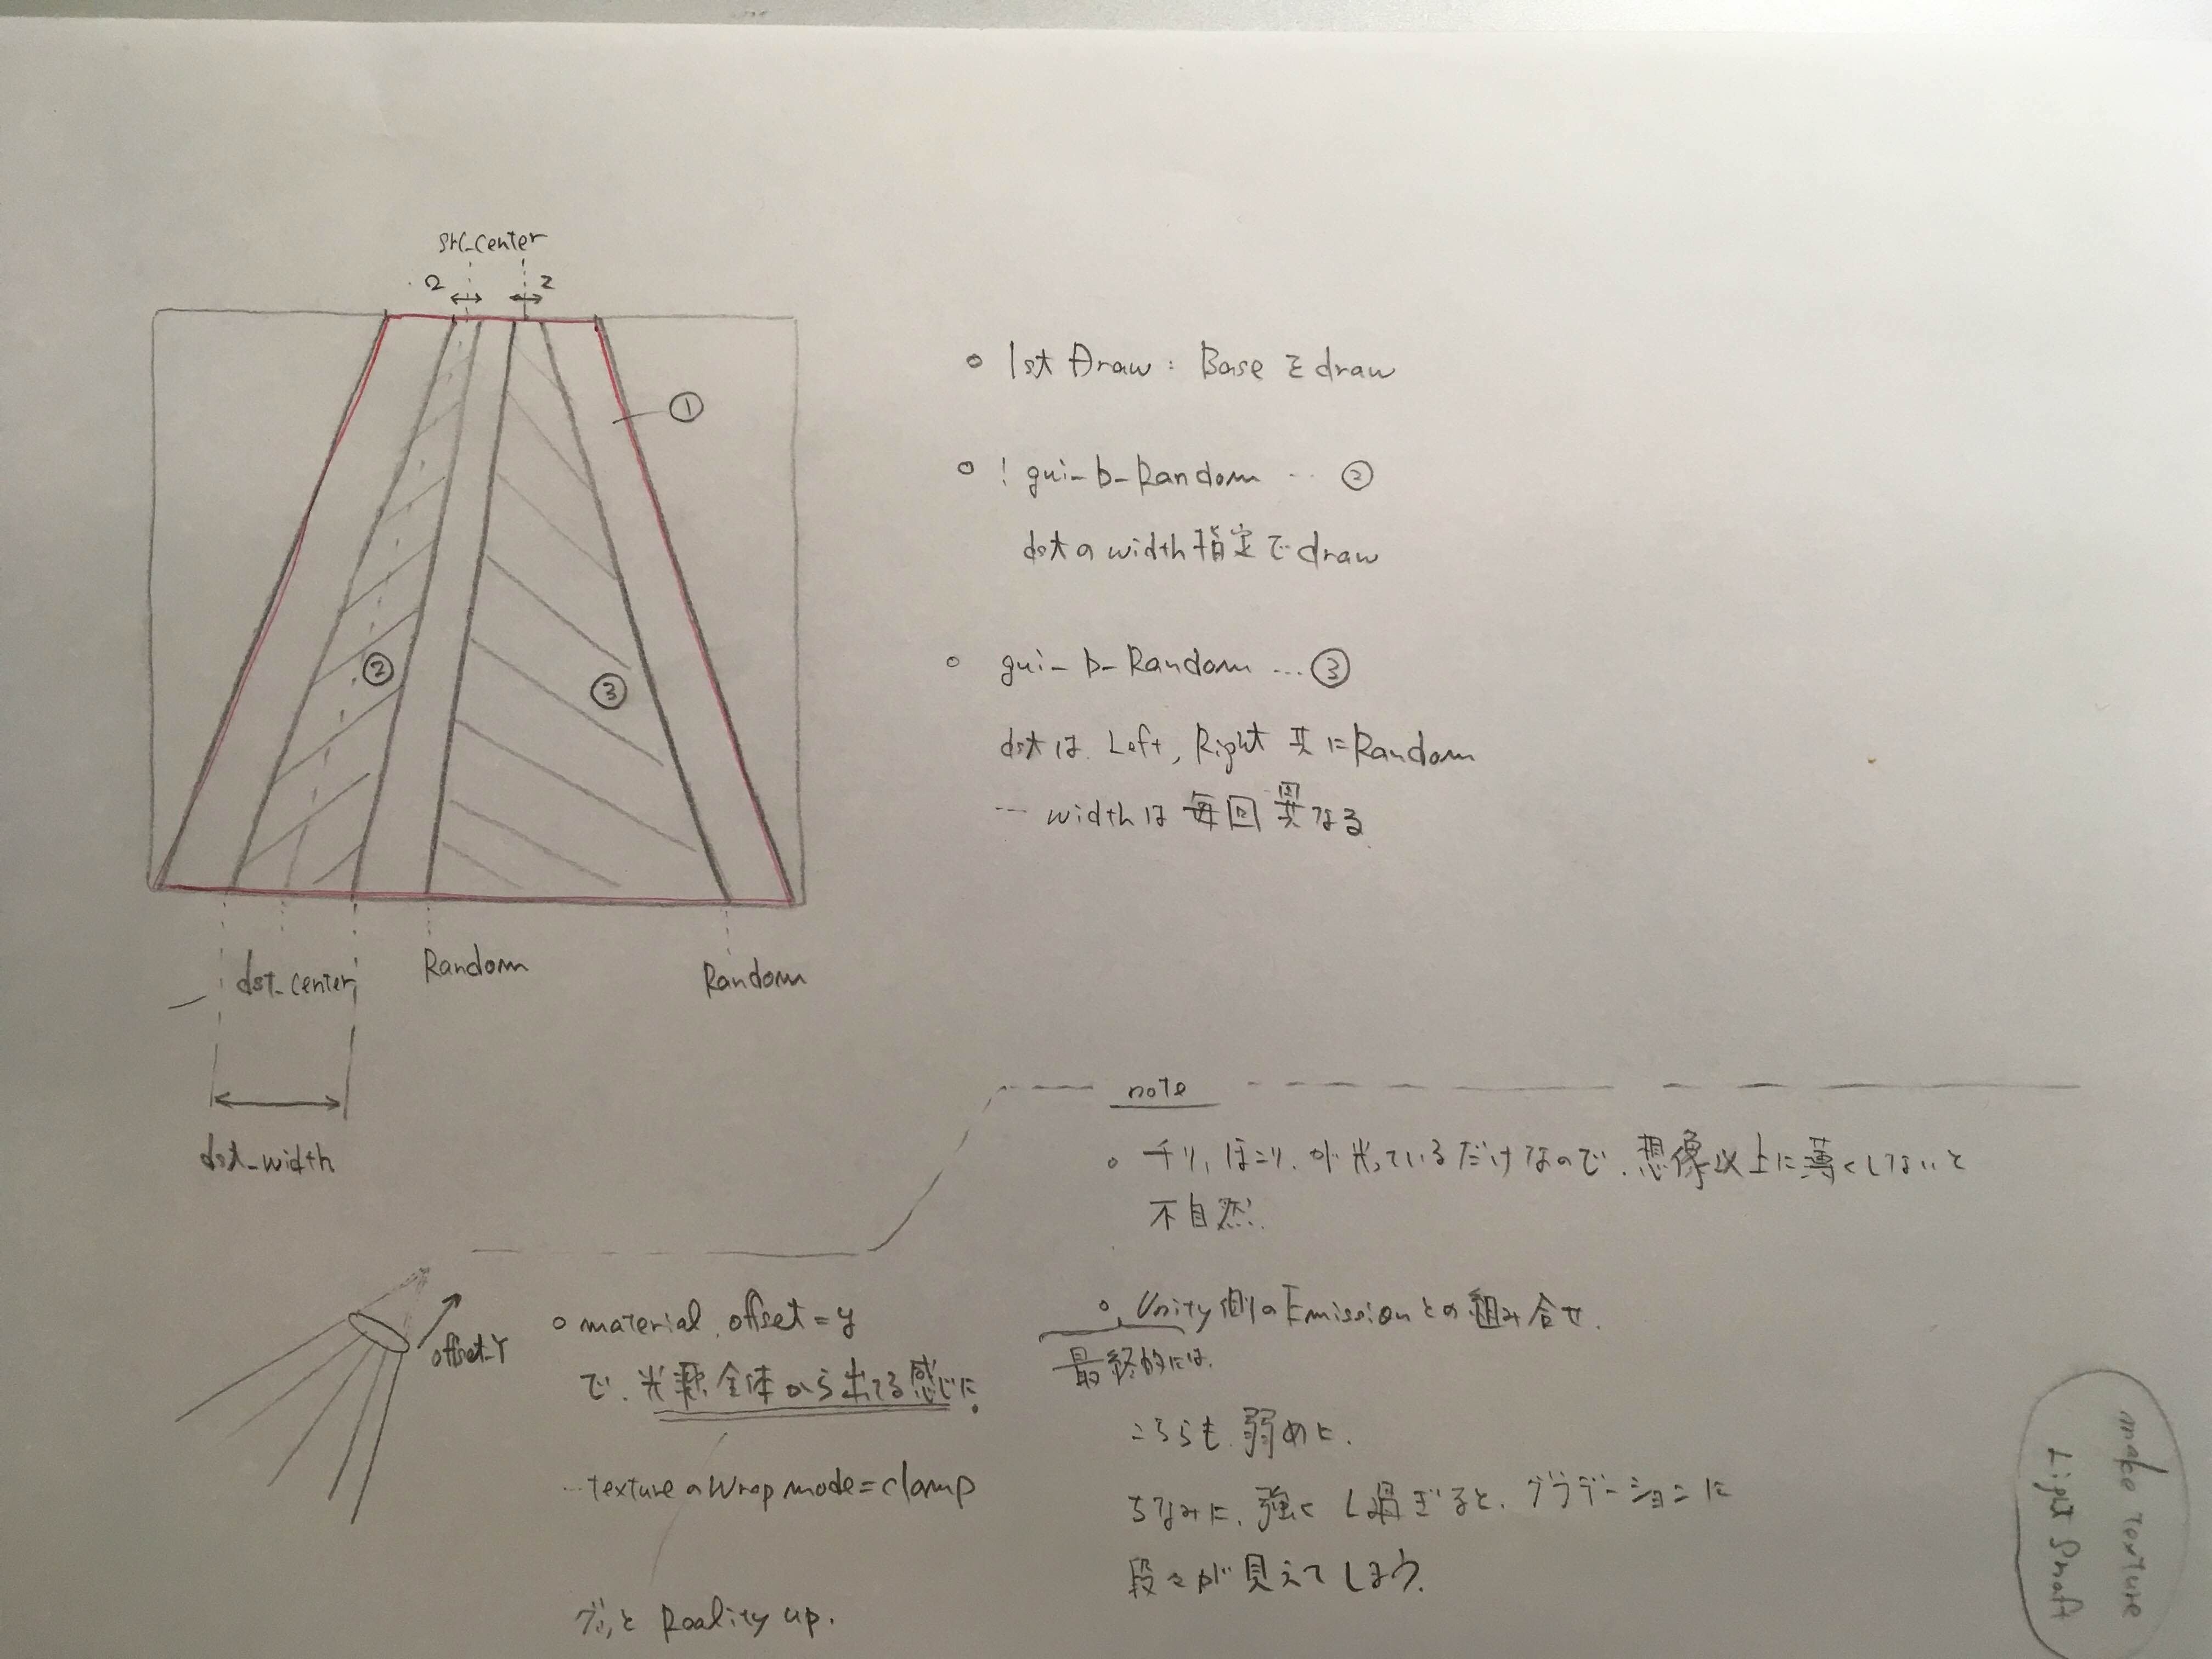 src_center
2 2
①
②
③
dst_center
Random
Random
dst_width
○ 1st Draw : Base を draw
○ ! gui_b_Random … ②
dstのwidth指定でdraw
○ gui_b_Random … ③
dstは Left, Right 共にRandom
… widthは毎回異なる
note
○ チリ、ほこり、が光っているだけなので、想像以上に薄くしないと
不自然.
○ Unity側のEmissionとの組み合せ.
最終的には.
こちらも弱めに.
ちなみに、強くし過ぎると、グラデーションに
段々が見えてしまう.
offset_Y
○ material.offset = y
で、光源全体から出てる感じに.
… textureのWrap mode = clamp
グッと Reality up.
make texture
Light Shaft